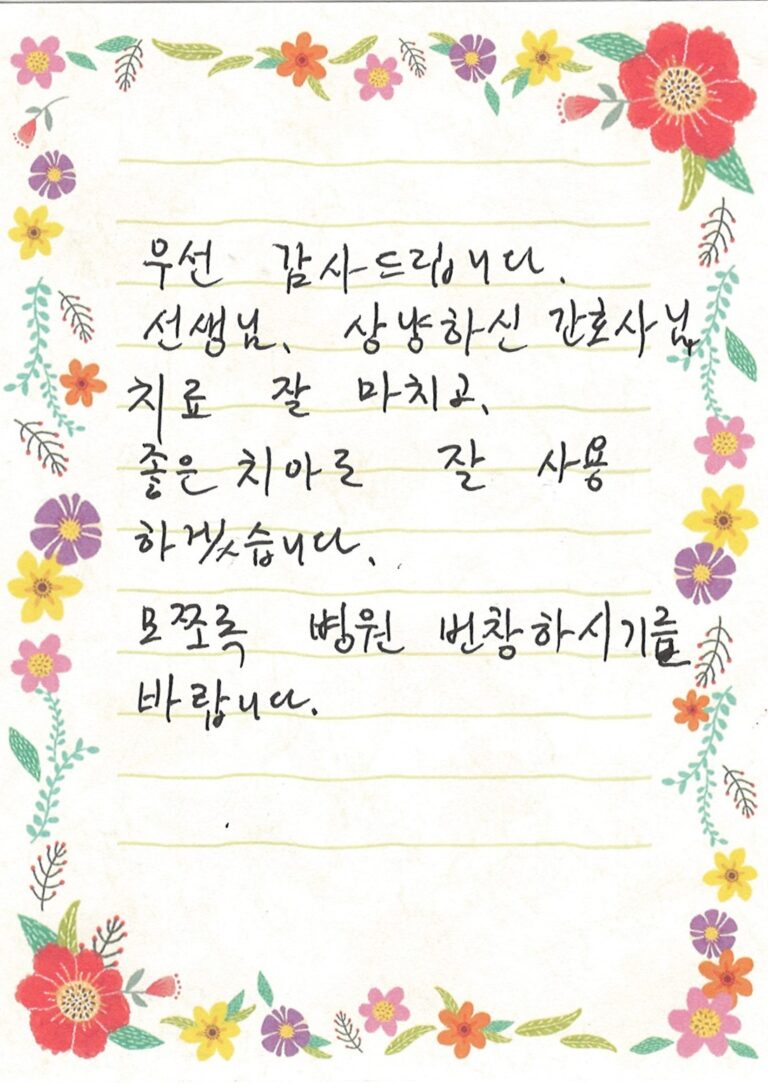 우선 감사드립니다.
선생님, 상냥하신 간호사님,
치료 잘 마치고,
좋은 치아로 잘 사용
하겠습니다.
모쪼록 병원 번창하시기를
바랍니다.